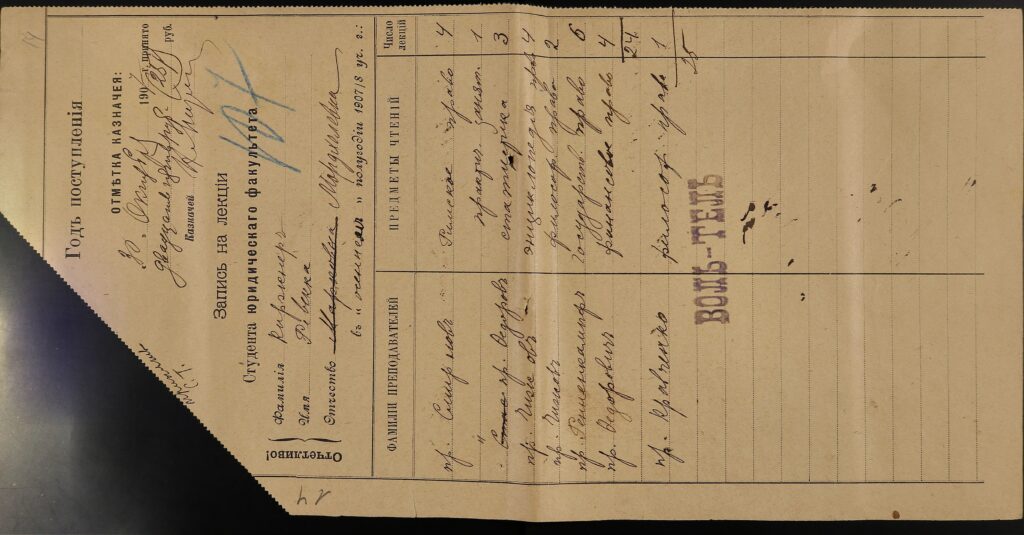 Годъ поступленія
ОТМѢТКА КАЗНАЧЕЯ:
30. Октября 190 г. принято
Двадцать руб.
Казначей
Запись на лекціи
Студента юридическаго факультета
Отчетливо!
Фамилія Киржнеръ
Имя Ревека
Отчество Мордхелевна
въ осеннемъ полугодіи 1907/8 уч. г.:
ФАМИЛІИ ПРЕПОДАВАТЕЛЕЙ ПРЕДМЕТЫ ЧТЕНІЙ Число лекцій
пр. Смирновъ Римское право 4
" практич. занят. 1
пр. Федоровъ статистика 3
пр. Чижовъ энциклопедія права 4
пр. Чижовъ философ. право 2
пр. Ренненкампфъ государств. право 6
пр. Федоровичъ финансовое право 4
24
пр. Кравченко философ. права 1
25
ВОЛЬ-ТЕЛЬ